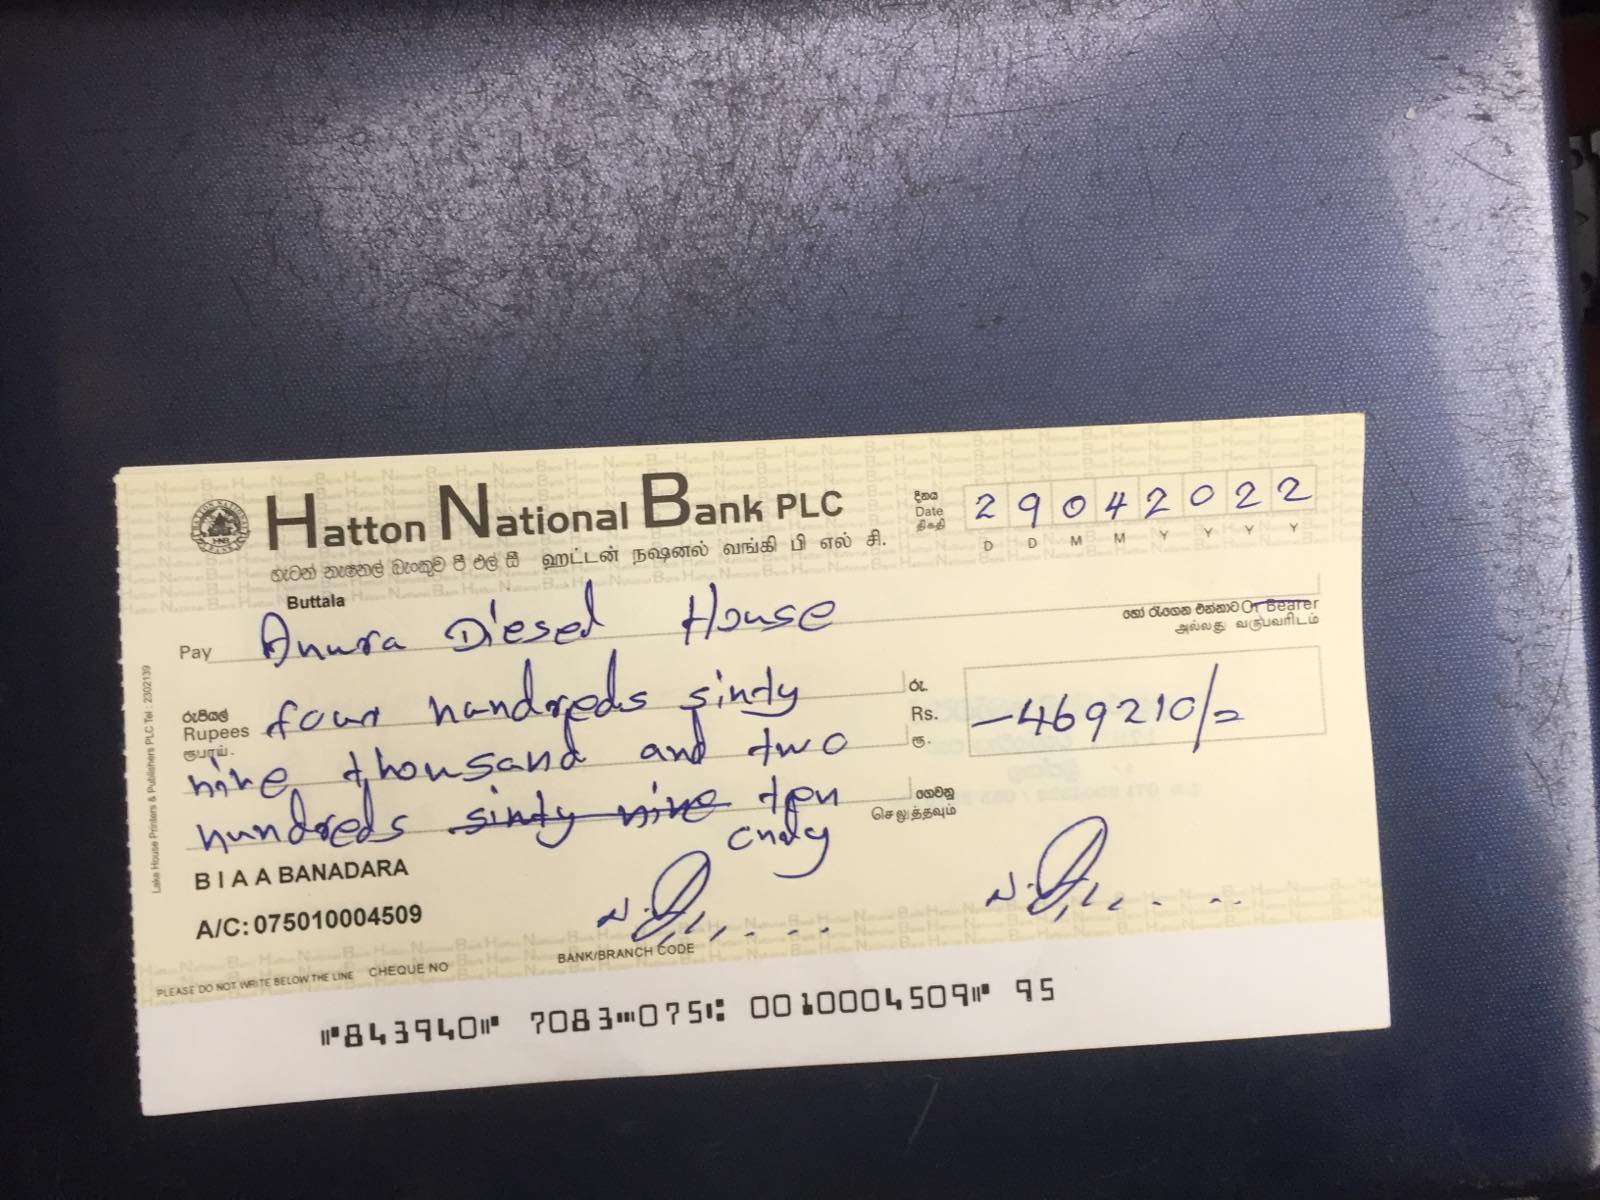 Hatton National Bank PLC
හැටන් නැෂනල් බැංකුව පී එල් සී ஹட்டன் நஷனல் வங்கி பி எல் சி.
Buttala
දිනය
Date
திகதி
2 9 0 4 2 0 2 2
D D M M Y Y Y Y
Pay Anura Diesel House
හෝ රැගෙන එන්නාට Or Bearer
அல்லது வருபவரிடம்
රුපියල්
Rupees four hundreds sinty
ரூபாய்.
nine thousand and two
hundreds sinty nine ten
cndy
රු.
Rs. -469210/=
ரூ.
ගෙවනු
செலுத்தவும்
B I A A BANADARA
A/C: 075010004509
PLEASE DO NOT WRITE BELOW THE LINE CHEQUE NO BANK/BRANCH CODE
⑈843940⑈ 7083⑉075⑆ 0010004509⑈ 95
Lake House Printers & Publishers PLC Tel : 2302139